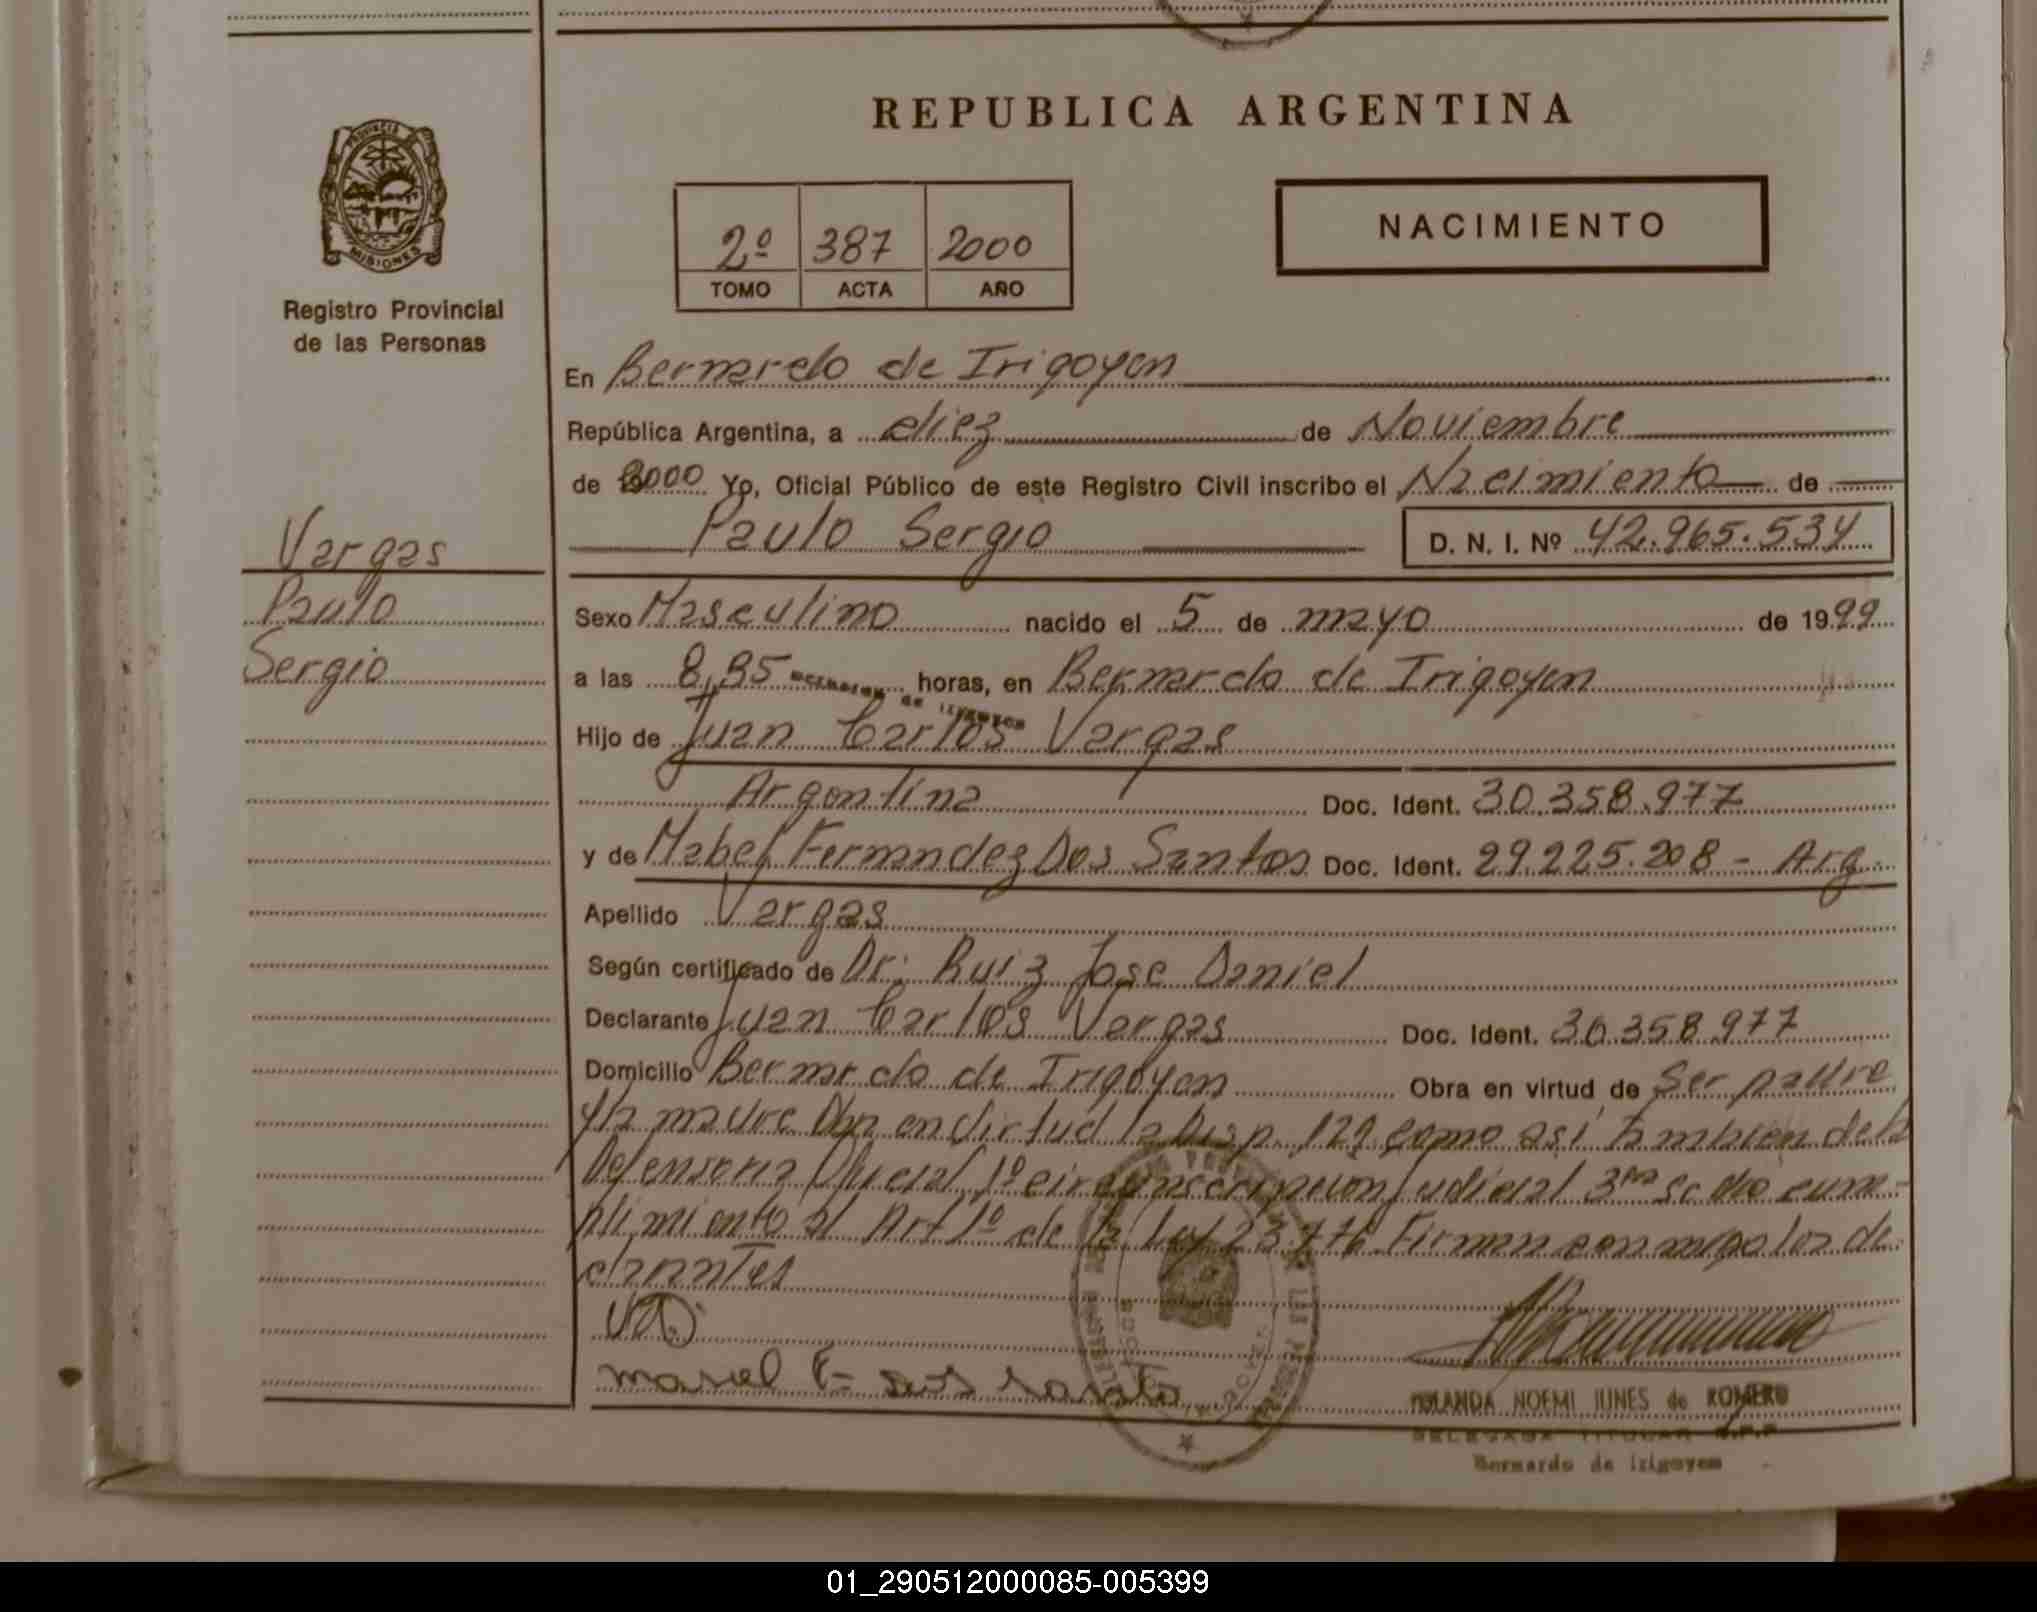 REPUBLICA ARGENTINA
PROVINCIA
MISIONES
Registro Provincial
de las Personas
2º 387 2000
TOMO ACTA AÑO
NACIMIENTO
En Bernardo de Irigoyen
República Argentina, a diez de Noviembre
de 2000 Yo, Oficial Público de este Registro Civil inscribo el Nacimiento de
Paulo Sergio D. N. I. Nº 42.965.534
Vargas
Paulo
Sergio
Sexo Masculino nacido el 5 de mayo de 1999
a las 8,35 horas, en Bernardo de Irigoyen
de Irigoyen
Hijo de Juan Carlos Vargas
Argentina Doc. Ident. 30.358.977
y de Mabel Fernandez Dos Santos Doc. Ident. 29.225.208 - Arg.
Apellido Vargas
Según certificado de Dr: Ruiz Jose Daniel
Declarante Juan Carlos Vargas Doc. Ident. 30.358.977
Domicilio Bernardo de Irigoyen Obra en virtud de Ser padre
y la madre Obra en virtud la Disp. 129 como asi tambien de la
Defensoria Oficial 1º circunscripcion Judicial 3ra Se dio cum-
plimiento al Art 1º de la Ley 23.776 Firman conmigo los de
clarantes
YOLANDA NOEMI IUNES de ROMERO
DELEGADA TITULAR R.P.P.
Bernardo de Irigoyen
01_290512000085-005399